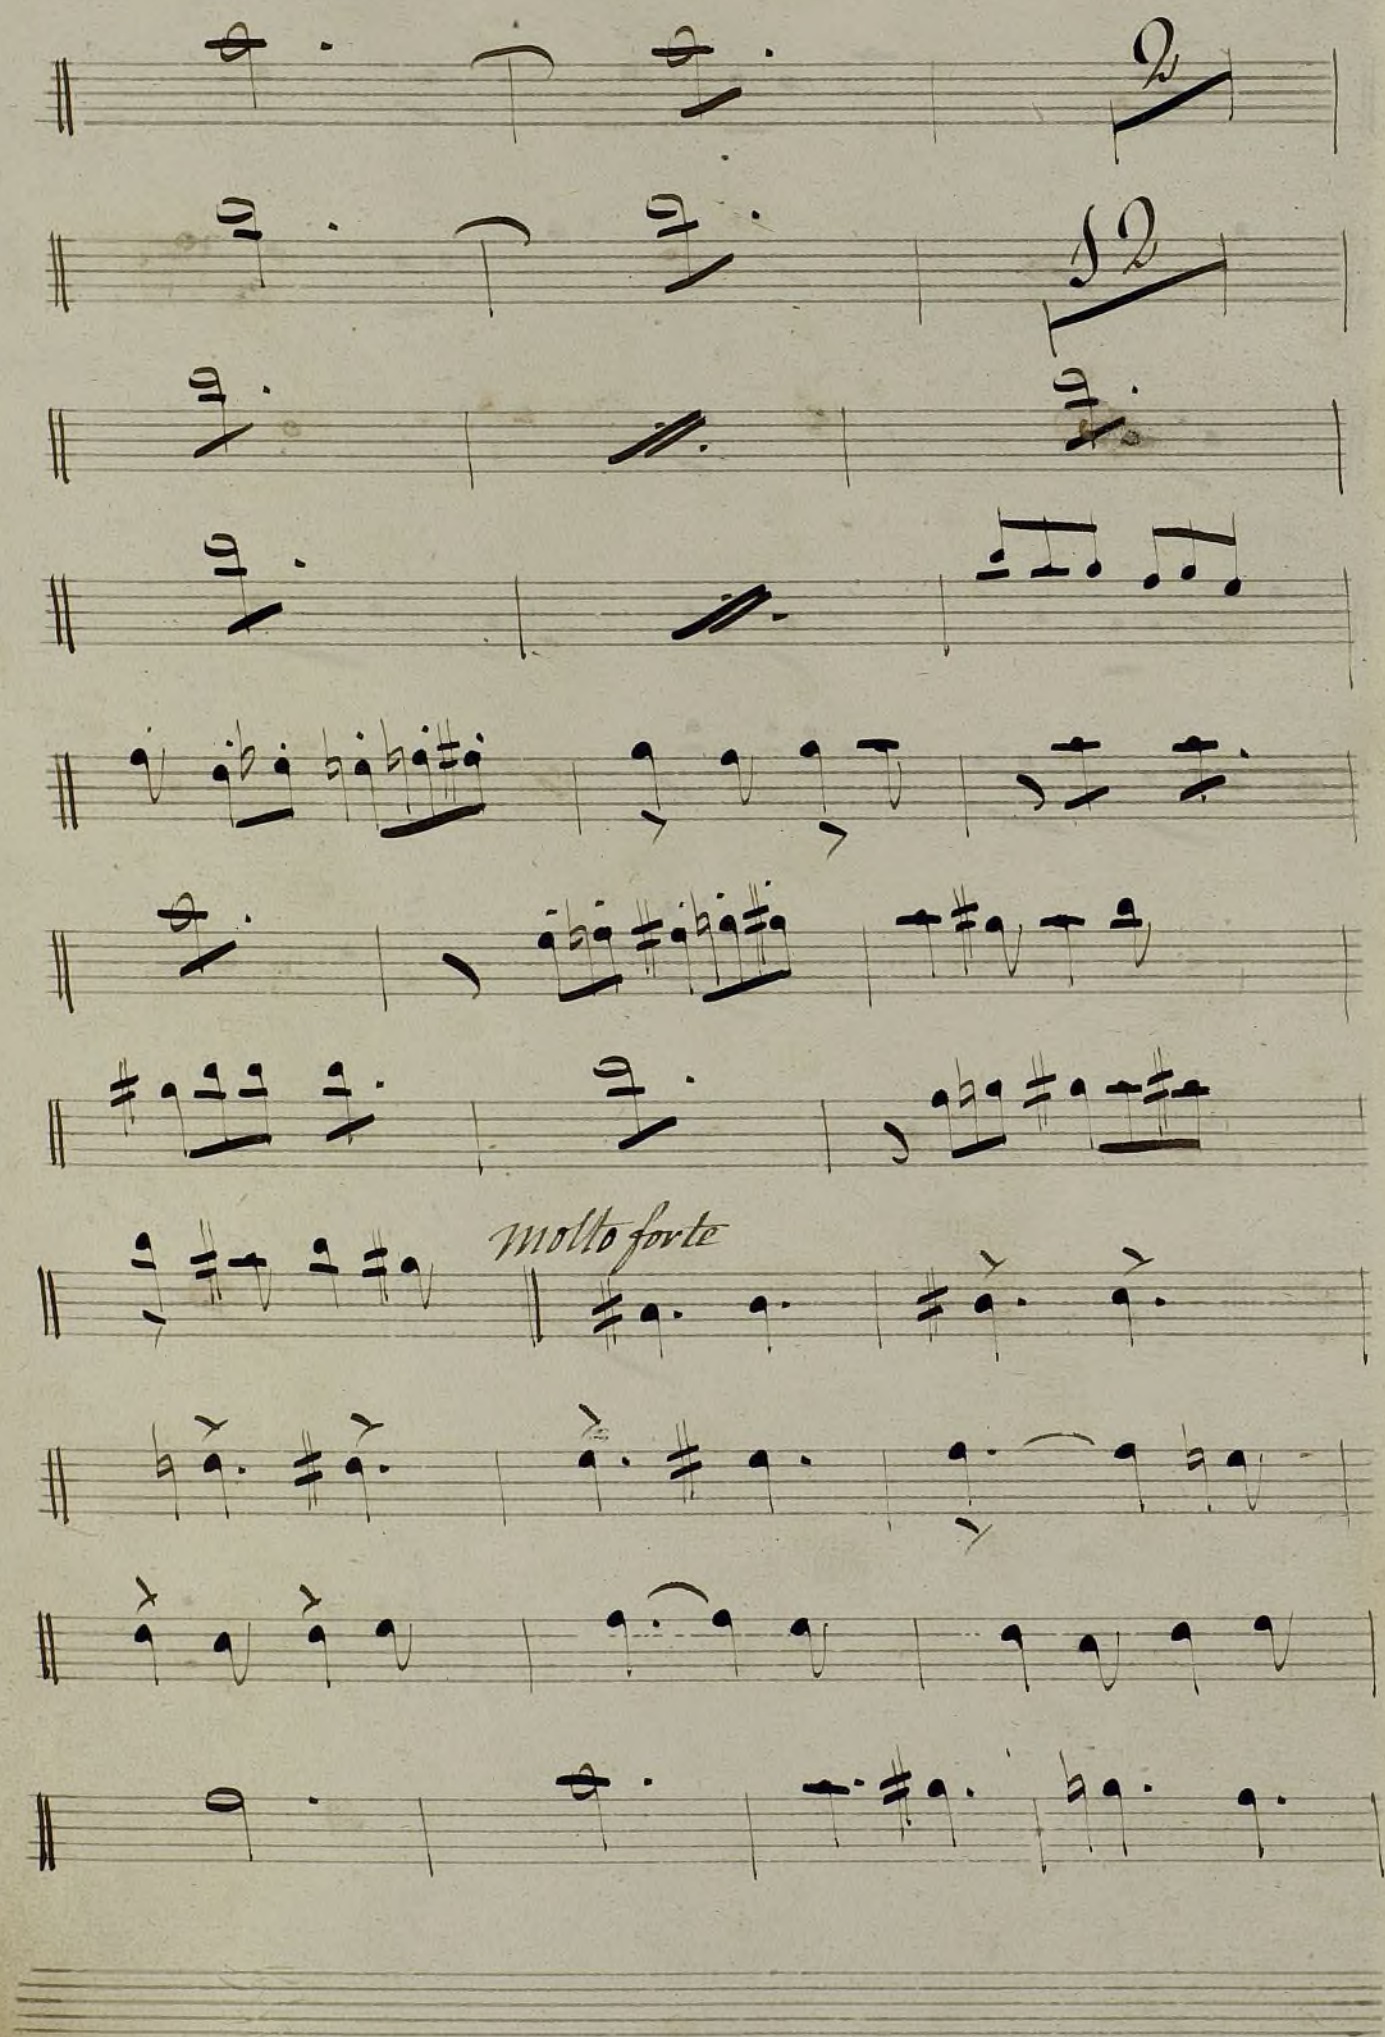 2
12
molto forte